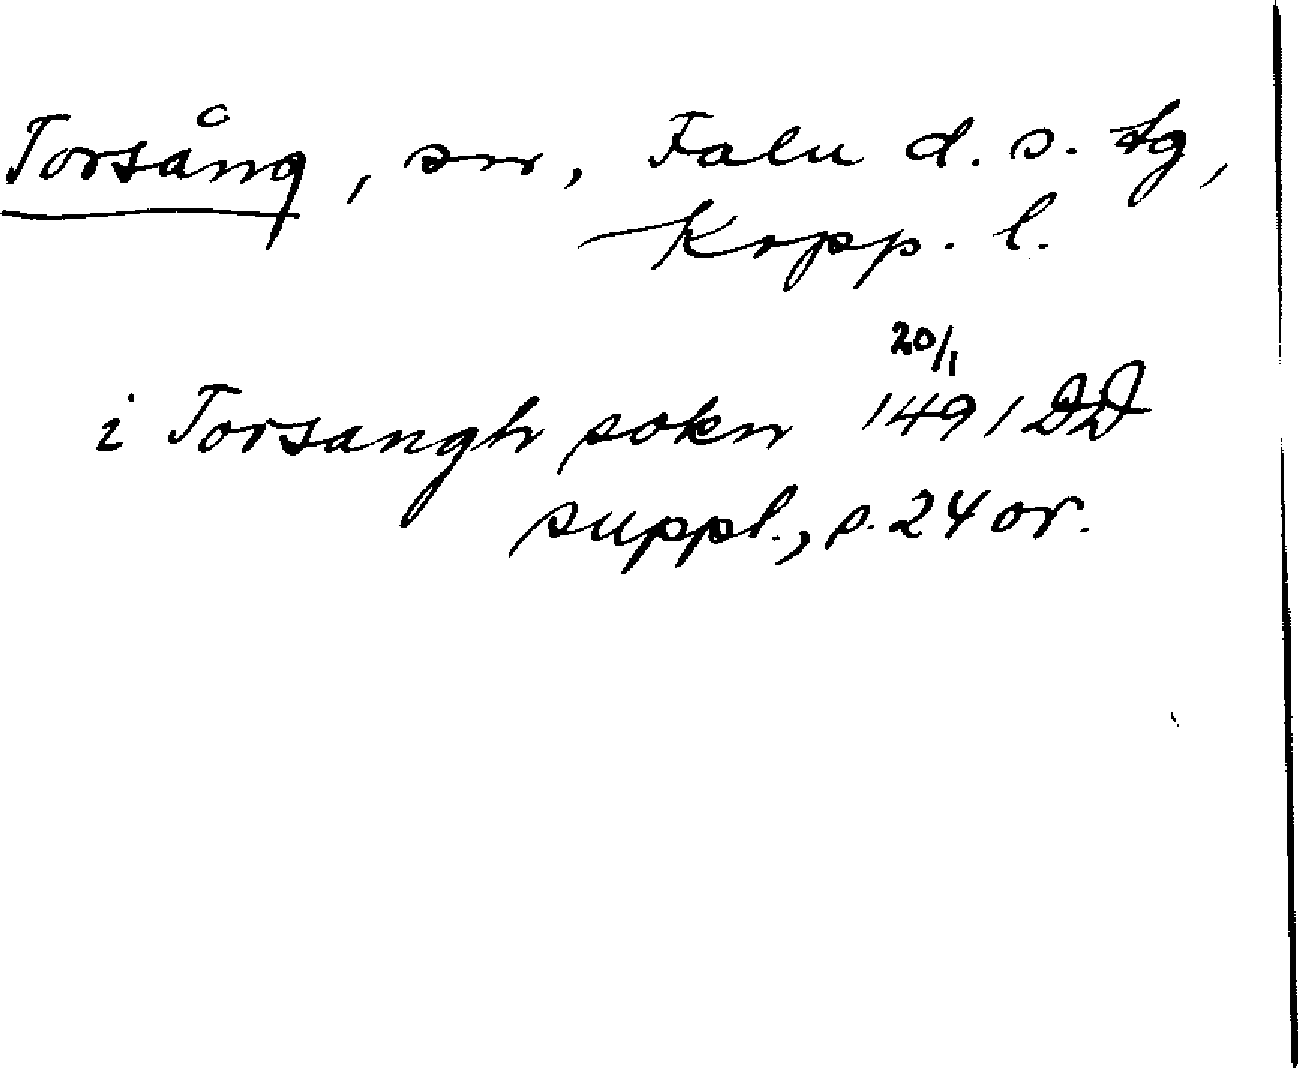 Torsång, sn, Falu d. s. tg,
Kopp. l.
20/1
i Torsangh sokn 1491 DD
suppl., s. 24 or.